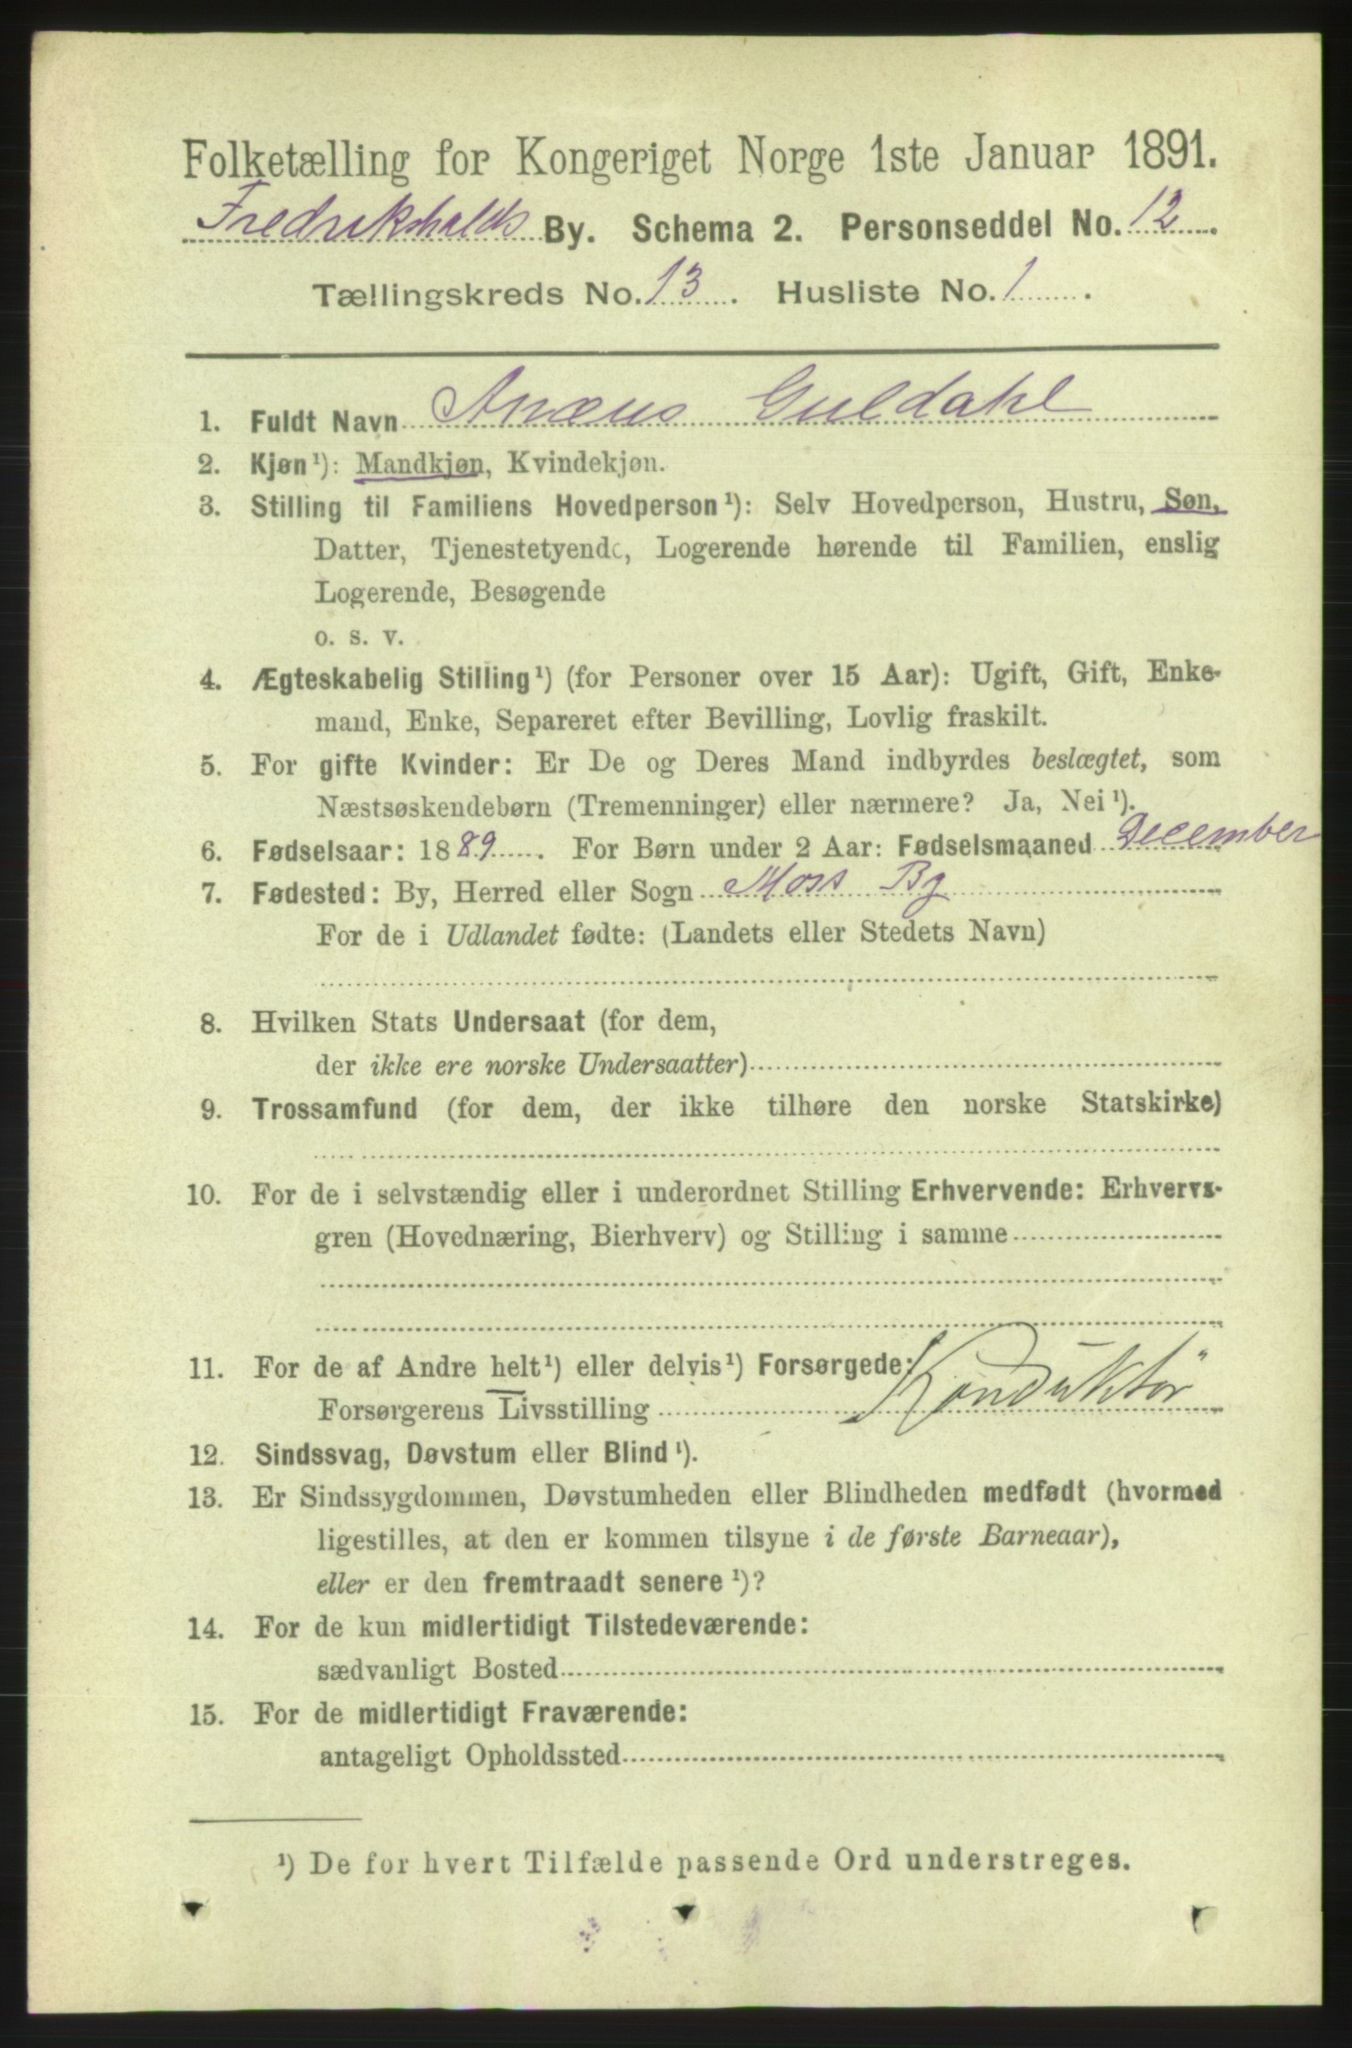 Folketælling for Kongeriget Norge 1ste Januar 1891.
Fredrikshalds By. Schema 2. Personseddel No. 12.
Tællingskreds No. 13. Husliste No. 1.
1. Fuldt Navn Anæus Guldahl
2. Kjøn¹): Mandkjøn, Kvindekjøn.
3. Stilling til Familiens Hovedperson¹): Selv Hovedperson, Hustru, Søn,
Datter, Tjenestetyende, Logerende hørende til Familien, enslig
Logerende, Besøgende
o. s. v.
4. Ægteskabelig Stilling¹) (for Personer over 15 Aar): Ugift, Gift, Enke-
mand, Enke, Separeret efter Bevilling, Lovlig fraskilt.
5. For gifte Kvinder: Er De og Deres Mand indbyrdes beslægtet, som
Næstsøskendebørn (Tremenninger) eller nærmere? Ja, Nei¹).
6. Fødselsaar: 1889. For Børn under 2 Aar: Fødselsmaaned December
7. Fødested: By, Herred eller Sogn Moss By
For de i Udlandet fødte: (Landets eller Stedets Navn)
8. Hvilken Stats Undersaat (for dem,
der ikke ere norske Undersaatter)
9. Trossamfund (for dem, der ikke tilhøre den norske Statskirke)
10. For de i selvstændig eller i underordnet Stilling Erhvervende: Erhvervs-
gren (Hovednæring, Bierhverv) og Stilling i samme
11. For de af Andre helt¹) eller delvis¹) Forsørgede:
Forsørgerens Livsstilling Konduktör
12. Sindssvag, Døvstum eller Blind¹).
13. Er Sindssygdommen, Døvstumheden eller Blindheden medfødt (hvormed
ligestilles, at den er kommen tilsyne i de første Barneaar),
eller er den fremtraadt senere¹)?
14. For de kun midlertidigt Tilstedeværende:
sædvanligt Bosted
15. For de midlertidigt Fraværende:
antageligt Opholdssted
¹) De for hvert Tilfælde passende Ord understreges.